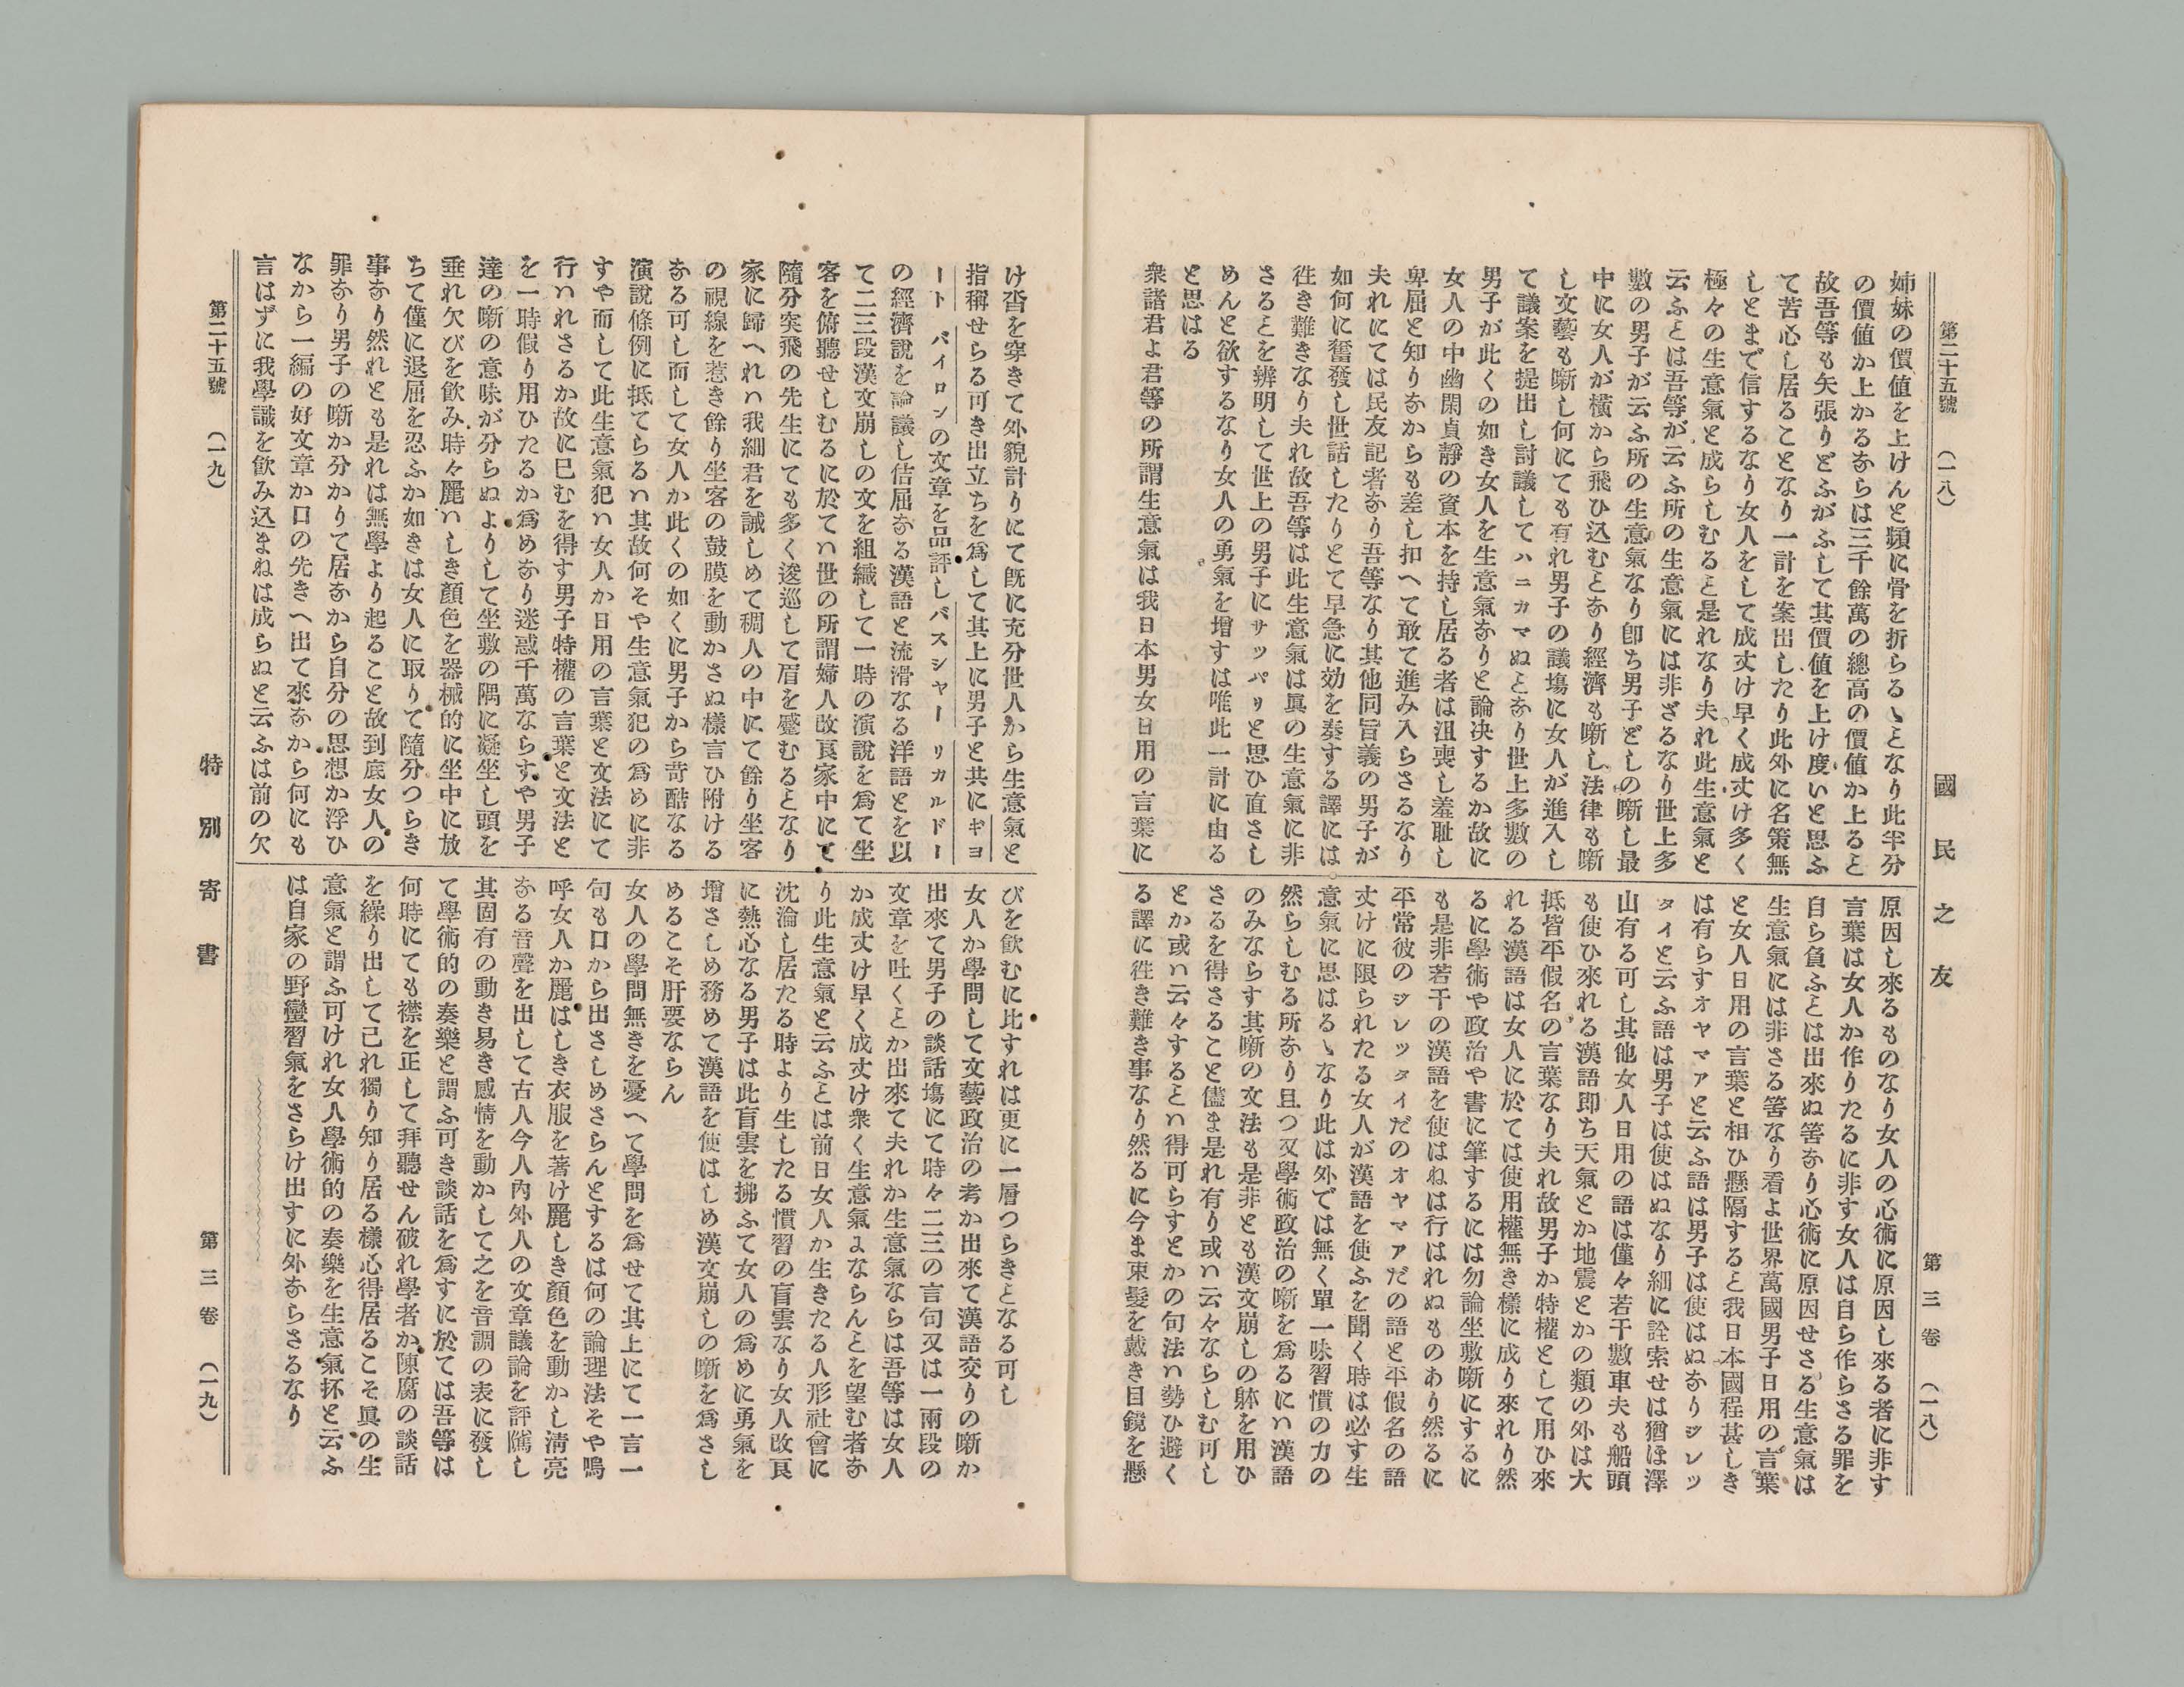 第二十五號　（一八）
國民之友
第三卷　（一八）
姉妹の價値を上けんと頻に骨を折らるゝとなり此半分
の價値か上かるならは三千餘萬の總高の價値か上ると
故吾等も矢張りどふがふして其價値を上け度いと思ふ
て苦心し居ることなり一計を案出したり此外に名策無
しとまで信するなり女人をして成丈け早く成丈け多く
極々の生意氣と成らしむると是れなり夫れ此生意氣と
云ふとは吾等が云ふ所の生意氣には非ざるなり世上多
數の男子が云ふ所の生意氣なり卽ち男子どしの噺し最
中に女人が橫から飛ひ込むとなり經濟も噺し法律も噺
し文藝も噺し何にても有れ男子の議塲に女人が進入し
て議案を提出し討議してハニカマぬとなり世上多數の
男子が此くの如き女人を生意氣なりと論決するか故に
女人の中幽閑貞靜の資本を持し居る者は沮喪し羞耻し
卑屈と知りなからも差し扣へて敢て進み入らさるなり
夫れにては民友記者なり吾等なり其他同旨義の男子が
如何に奮發し世話したりとて早急に効を奏する譯には
徃き難きなり夫れ故吾等は此生意氣は眞の生意氣に非
さるとを辨明して世上の男子にサッパリと思ひ直さし
めんと欲するなり女人の勇氣を增すは唯此一計に由る
と思はる
衆諸君よ君等の所謂生意氣は我日本男女日用の言葉に
原因し來るものなり女人の心術に原因し來る者に非す
言葉は女人か作りたるに非す女人は自ら作らさる罪を
自ら負ふとは出來ぬ筈なり心術に原因せさる生意氣は
生意氣には非さる筈なり看よ世界萬國男子日用の言葉
と女人日用の言葉と相ひ懸隔すると我日本國程甚しき
は有らすオヤマアと云ふ語は男子は使はぬなりジレッ
タイと云ふ語は男子は使はぬなり細に詮索せは猶ほ澤
山有る可し其他女人日用の語は僅々若干數車夫も船頭
も使ひ來れる漢語卽ち天氣とか地震とかの類の外は大
抵皆平假名の言葉なり夫れ故男子か特權として用ひ來
れる漢語は女人に於ては使用權無き樣に成り來れり然
るに學術や政治や書に筆するには勿論坐敷噺にするに
も是非若干の漢語を使はねは行はれぬものあり然るに
平常彼のジレッタイだのオヤマアだの語と平假名の語
丈けに限られたる女人が漢語を使ふを聞く時は必す生
意氣に思はるゝなり此は外では無く單一味習慣の力の
然らしむる所なり且つ又學術政治の噺を爲るにハ漢語
のみならす其噺の文法も是非とも漢文崩しの躰を用ひ
さるを得さること儘ま是れ有り或ハ云々ならしむ可し
とか或ハ云々するとハ得可らすとかの句法ハ勢ひ避く
る譯に徃き難き事なり然るに今ま束髮を戴き目鏡を懸
け沓を穿きて外貌計りにて既に充分世人から生意氣と
指稱せらる可き出立ちを爲して其上に男子と共にギヨ
ート バイロンの文章を品評しバスシャー リカルドー
の經濟說を論議し佶屈なる漢語と流滑なる洋語とを以
て二三段漢文崩しの文を組織して一時の演說を爲て坐
客を俯聽せしむるに於てハ世の所謂婦人改良家中にて
隨分突飛の先生にても多く逡巡して眉を蹙むるとなり
家に歸へれハ我細君を誡しめて稠人の中にて餘り坐客
の視線を惹き餘り坐客の鼓膜を動かさぬ樣言ひ附ける
なる可し而して女人か此くの如くに男子から苛酷なる
演說條例に抵てらるハ其故何そや生意氣犯の爲めに非
すや而して此生意氣犯ハ女人か日用の言葉と文法にて
行ハれさるか故に已むを得す男子特權の言葉と文法と
を一時假り用ひたるか爲めなり迷惑千萬ならすや男子
達の噺の意味が分らぬよりして坐敷の隅に凝坐し頭を
垂れ欠びを飲み時々麗ハしき顏色を器械的に坐中に放
ちて僅に退屈を忍ふか如きは女人に取りて隨分つらき
事なり然れとも是れは無學より起ること故到底女人の
罪なり男子の噺か分かりて居なから自分の思想か浮ひ
なから一編の好文章か口の先きへ出て來なから何にも
言はずに我學識を飲み込まねは成らぬと云ふは前の欠
びを飲むに比すれは更に一層つらきとなる可し
女人か學問して文藝政治の考か出來て漢語交りの噺か
出來て男子の談話塲にて時々二三の言句又は一兩段の
文章を吐くとか出來て夫れか生意氣ならは吾等は女人
か成丈け早く成丈け衆く生意氣よならんとを望む者な
り此生意氣と云ふとは前日女人か生きたる人形社會に
沈淪し居たる時より生したる慣習の盲雲なり女人改良
に熱心なる男子は此盲雲を拂ふて女人の爲めに勇氣を
增さしめ務めて漢語を使はしめ漢文崩しの噺を爲さし
めるこそ肝要ならん
女人の學問無きを憂へて學問を爲せて其上にて一言一
句も口から出さしめさらんとするは何の論理法そや嗚
呼女人か麗はしき衣服を著け麗しき顏色を動かし淸亮
なる音聲を出して古人今人內外人の文章議論を評隲し
其固有の動き易き感情を動かして之を音調の表に發し
て學術的の奏樂と謂ふ可き談話を爲すに於ては吾等は
何時にても襟を正して拜聽せん破れ學者か陳腐の談話
を繰り出して己れ獨り知り居る樣心得居るこそ眞の生
意氣と謂ふ可けれ女人學術的の奏樂を生意氣抔と云ふ
は自家の野蠻習氣をさらけ出すに外ならさるなり
第二十五號　（一九）
特別寄書
第三卷　（一九）